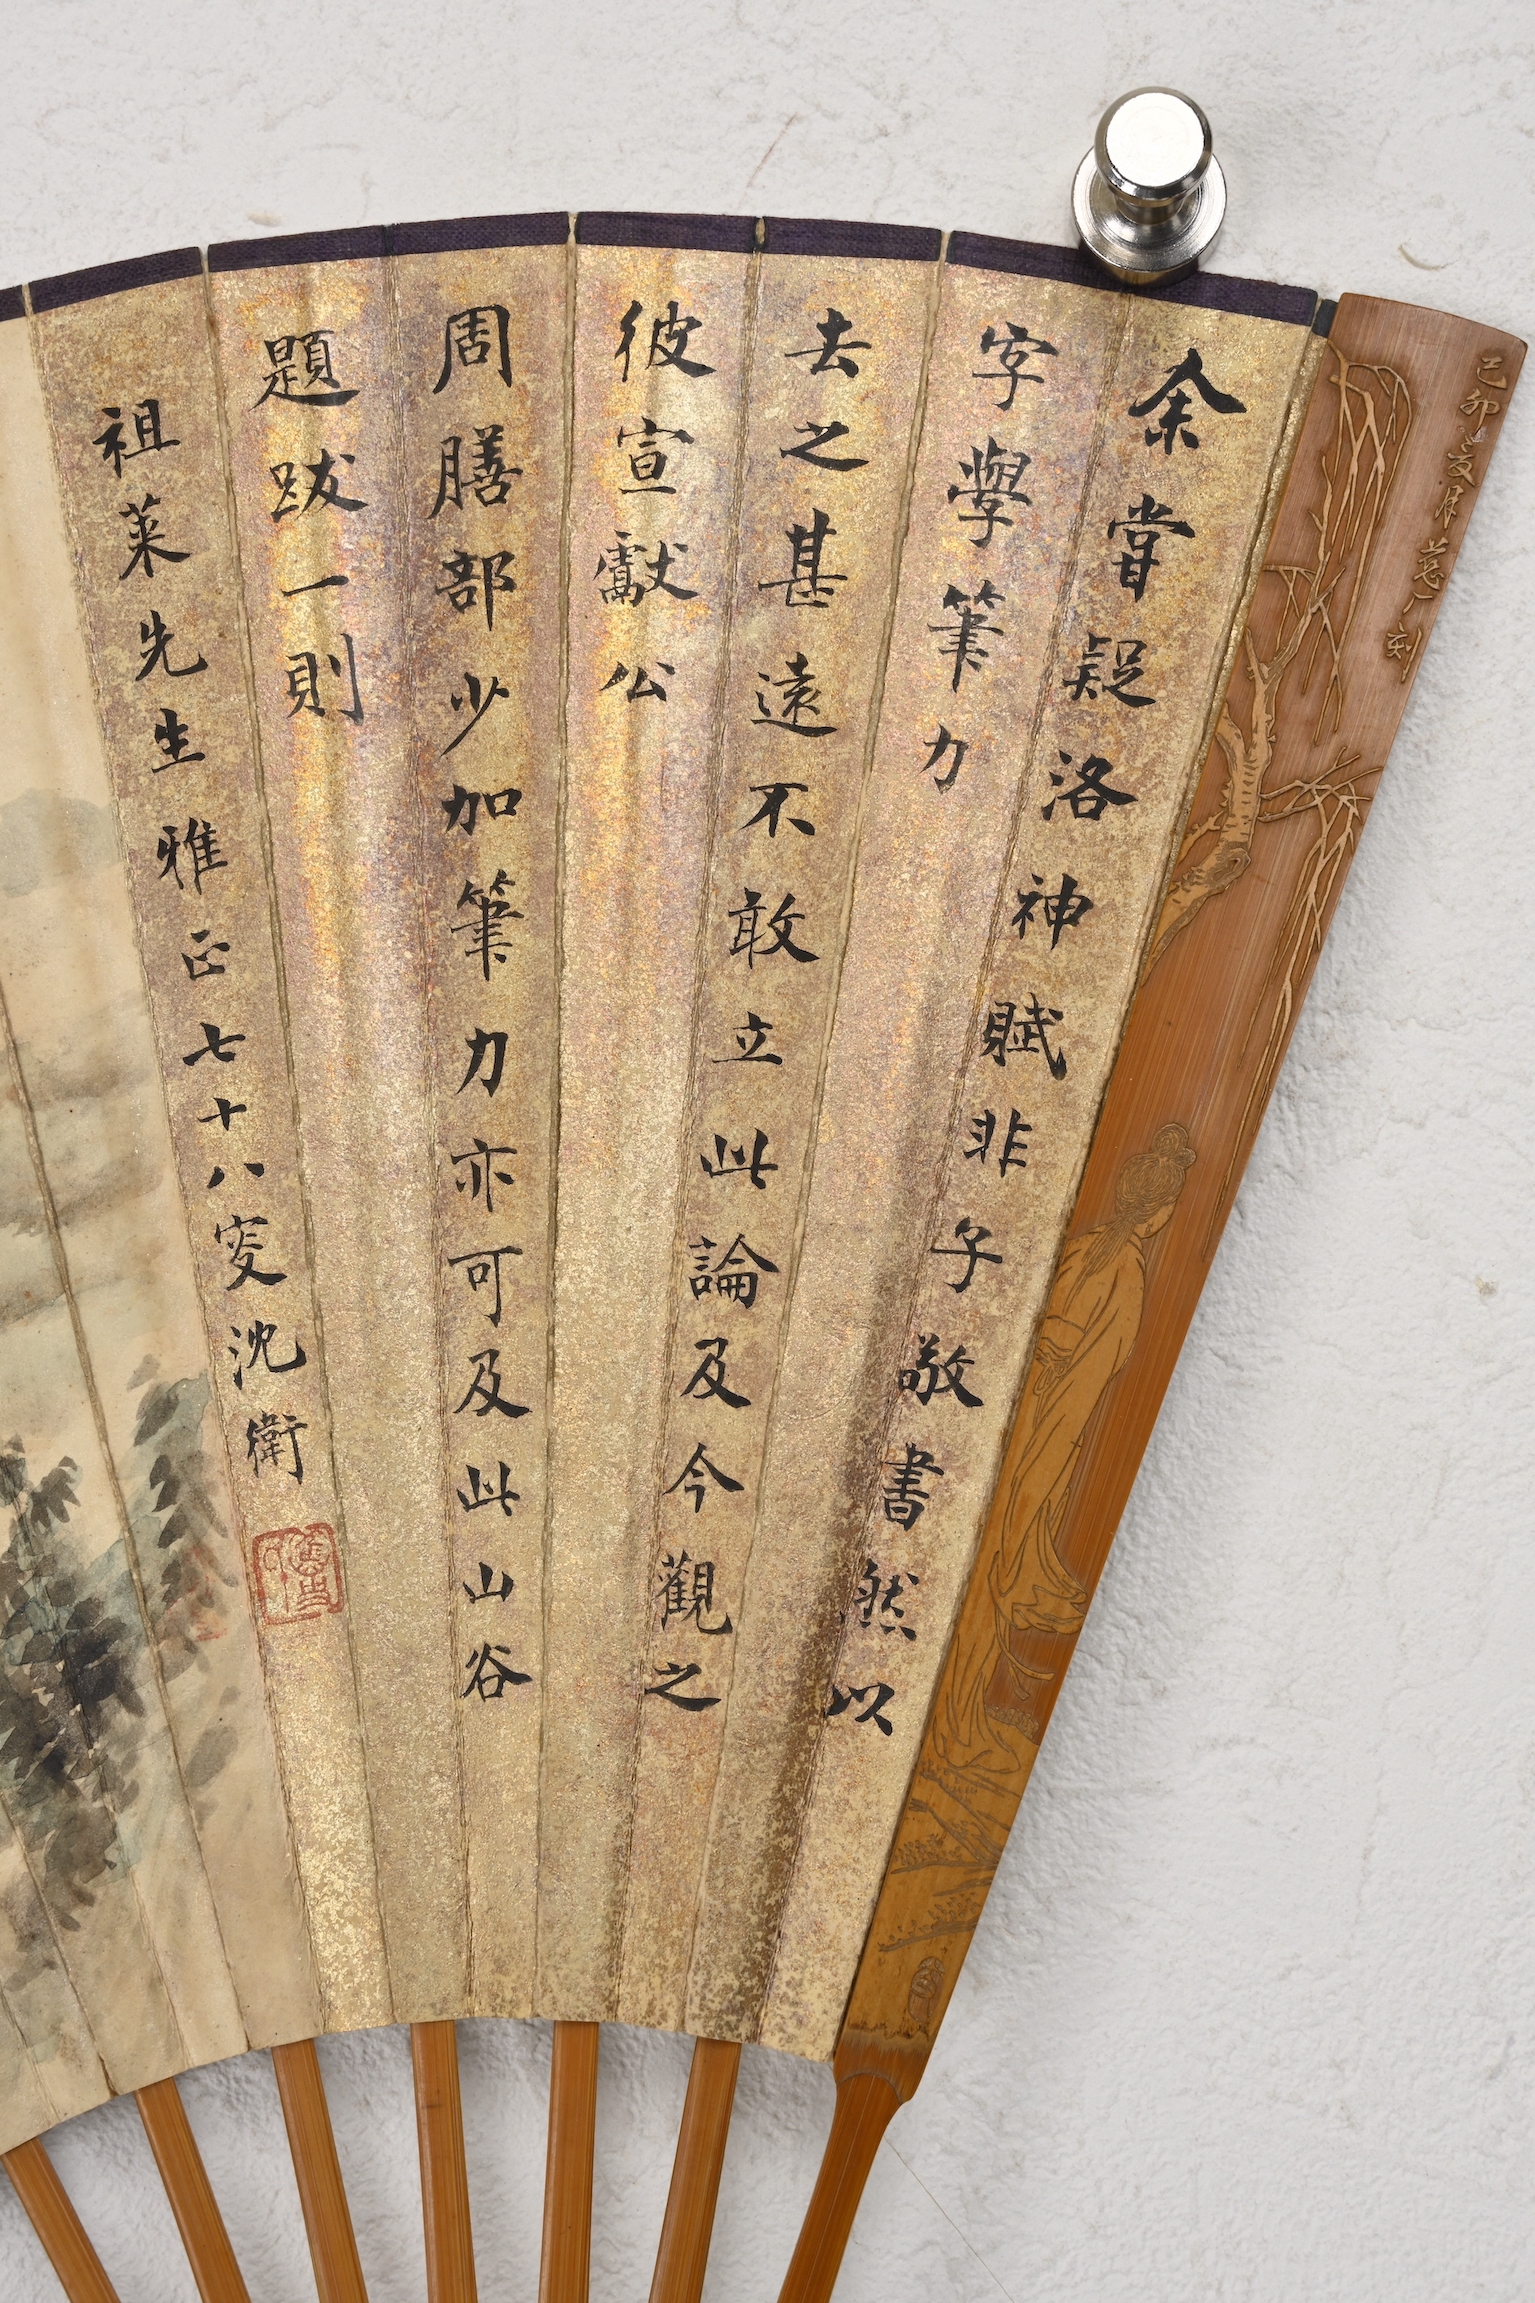 余嘗疑洛神賦非子敬書然以
字學筆力
去之甚遠不敢立此論及今觀之
彼宣獻公
周膳部少加筆力亦可及此山谷
題跋一則
祖萊先生雅正七十八叟沈衛
己卯
月
刻